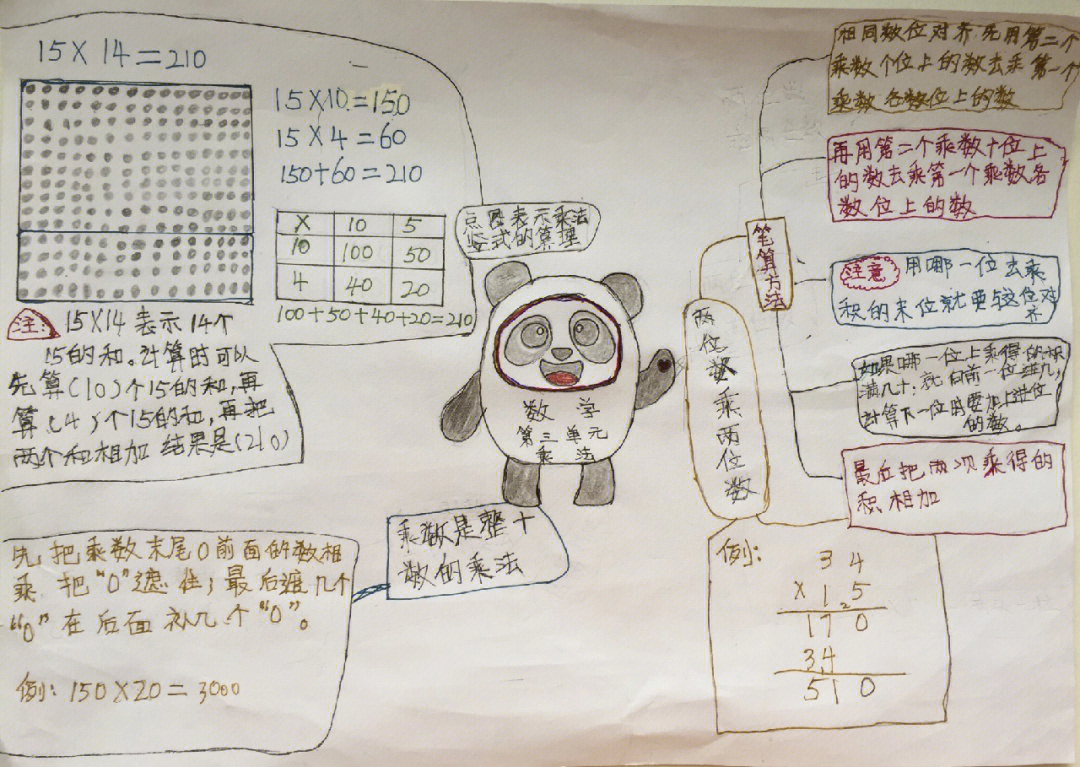 15×14=210
15×10=150
15×4=60
150+60=210
× 10 5
10 100 50
4 40 20
100+50+40+20=210
注: 15×14表示14个
15的和。计算时可以
先算(10)个15的和,再
算(4)个15的和,再把
两个和相加 结果是(210)
点图表示乘法
竖式的算理
数学
第三单元
乘法
乘数是整十
数的乘法
先把乘数末尾0前面的数相
乘,把“0”遮住;最后遮几个
“0”在后面补几个“0”。
例:150×20=3000
两位数乘两位数
笔算方法
相同数位对齐,先用第二个
乘数个位上的数去乘第一个
乘数各数位上的数
再用第二个乘数十位上
的数去乘第一个乘数各
数位上的数
注意 用哪一位去乘
积的末位就要与这位对
齐
如果哪一位上乘得的积
满几十,就向前一位进几,
计算下一位时要加上进位
的数。
最后把两次乘得的
积相加
例: 34
×1₂5
170
34
510